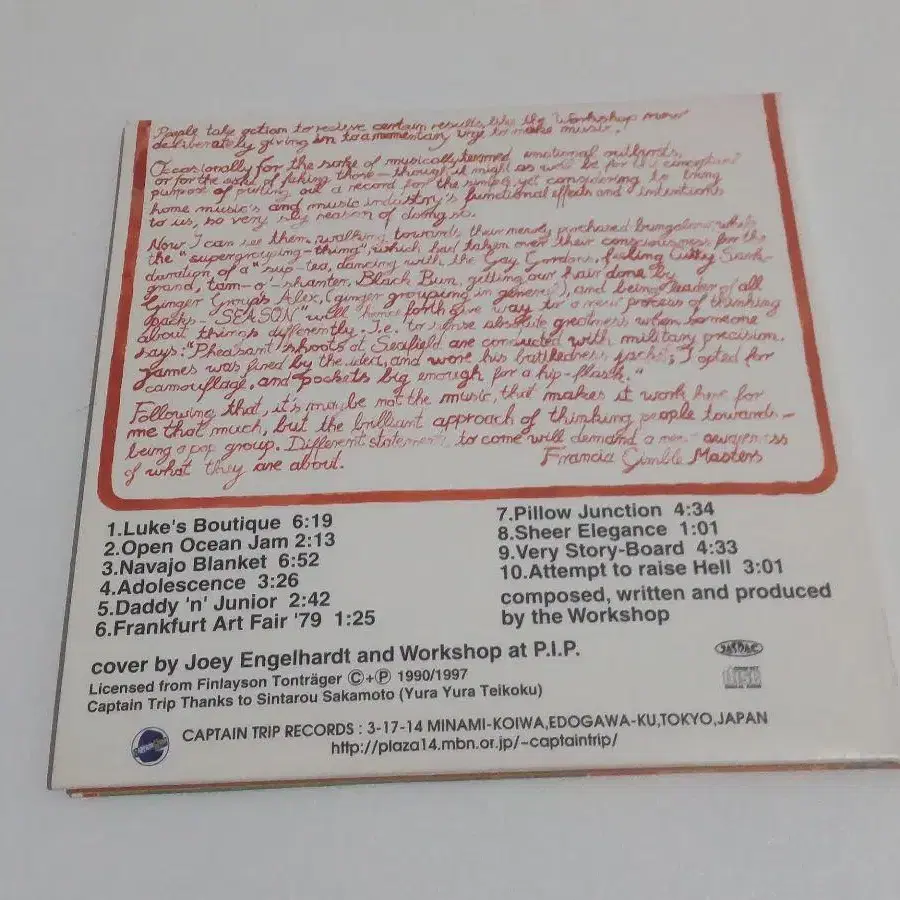 People take action to receive certain results, like the Workshop now
deliberately giving in to a momentary urge to make music.
Occasionally for the sake of musically termed emotional outbursts,
or for the sake of faking those – though it might as well be for the
purpose of putting out a record for the simple, yet considering to bring
home music's and music industry's functional effects and intentions
to us, so very sly reason of doing so.
Now I can see them, walking towards their newly purchased bungalow, what's
the "supergrouping-thing", which had taken over their consciousness for the
duration of a "sup-tea, dancing with the Gay Gordons, feeling Cutty Sark-
grand, tam-o'-shanter, Black Bun, getting our hair done by
Ginger Group's Alex, (ginger grouping in general), and being leader of all
packs- SEASON" will henceforth give way to a new process of thinking
about things differently. I.e. to sense absolute greatness when someone
says: "Pheasant shoots at Seafield are conducted with military precision.
James was fired by the idea, and wore his battledress jacket; I opted for
camouflage, and pockets big enough for a hip-flask."
Following that, it's maybe not the music, that makes it work here for
me that much, but the brilliant approach of thinking people towards –
being a pop group. Different statements to come will demand a new awareness
of what they are about.
Francis Gimble Masters
1.Luke's Boutique 6:19
2.Open Ocean Jam 2:13
3.Navajo Blanket 6:52
4.Adolescence 3:26
5.Daddy 'n' Junior 2:42
6.Frankfurt Art Fair '79 1:25
7.Pillow Junction 4:34
8.Sheer Elegance 1:01
9.Very Story-Board 4:33
10.Attempt to raise Hell 3:01
composed, written and produced
by the Workshop
cover by Joey Engelhardt and Workshop at P.I.P.
Licensed from Finlayson Tonträger ©+℗ 1990/1997
Captain Trip Thanks to Sintarou Sakamoto (Yura Yura Teikoku)
JASRAC
disc
CAPTAIN TRIP RECORDS : 3-17-14 MINAMI-KOIWA,EDOGAWA-KU,TOKYO,JAPAN
http://plaza14.mbn.or.jp/~captaintrip/